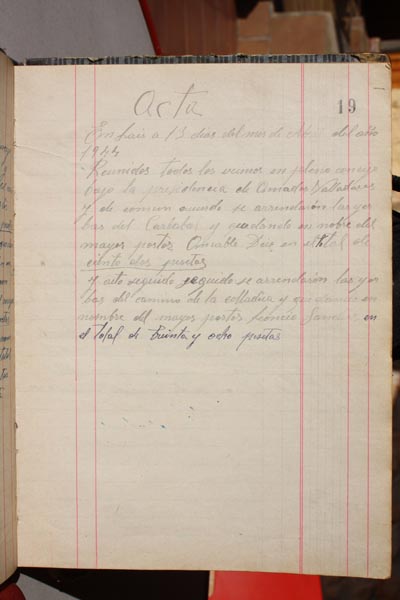 Acta
19
En Lais a 13 dias del mes de Abril del año
1944
Reunidos todos los vecinos en pleno concejo
bajo la presidencia de Amador Valladares
y de comun acuerdo se arrendarón las yer
bas del y quedando en nonbre del
mayor postor en el total de
ciento dos pesetas
y acto seguido seguido se arrendarón las yer
bas del camino de la colladica y quedando en
nombre del mayor postor Sanchez en
el total de treinta y ocho pesetas